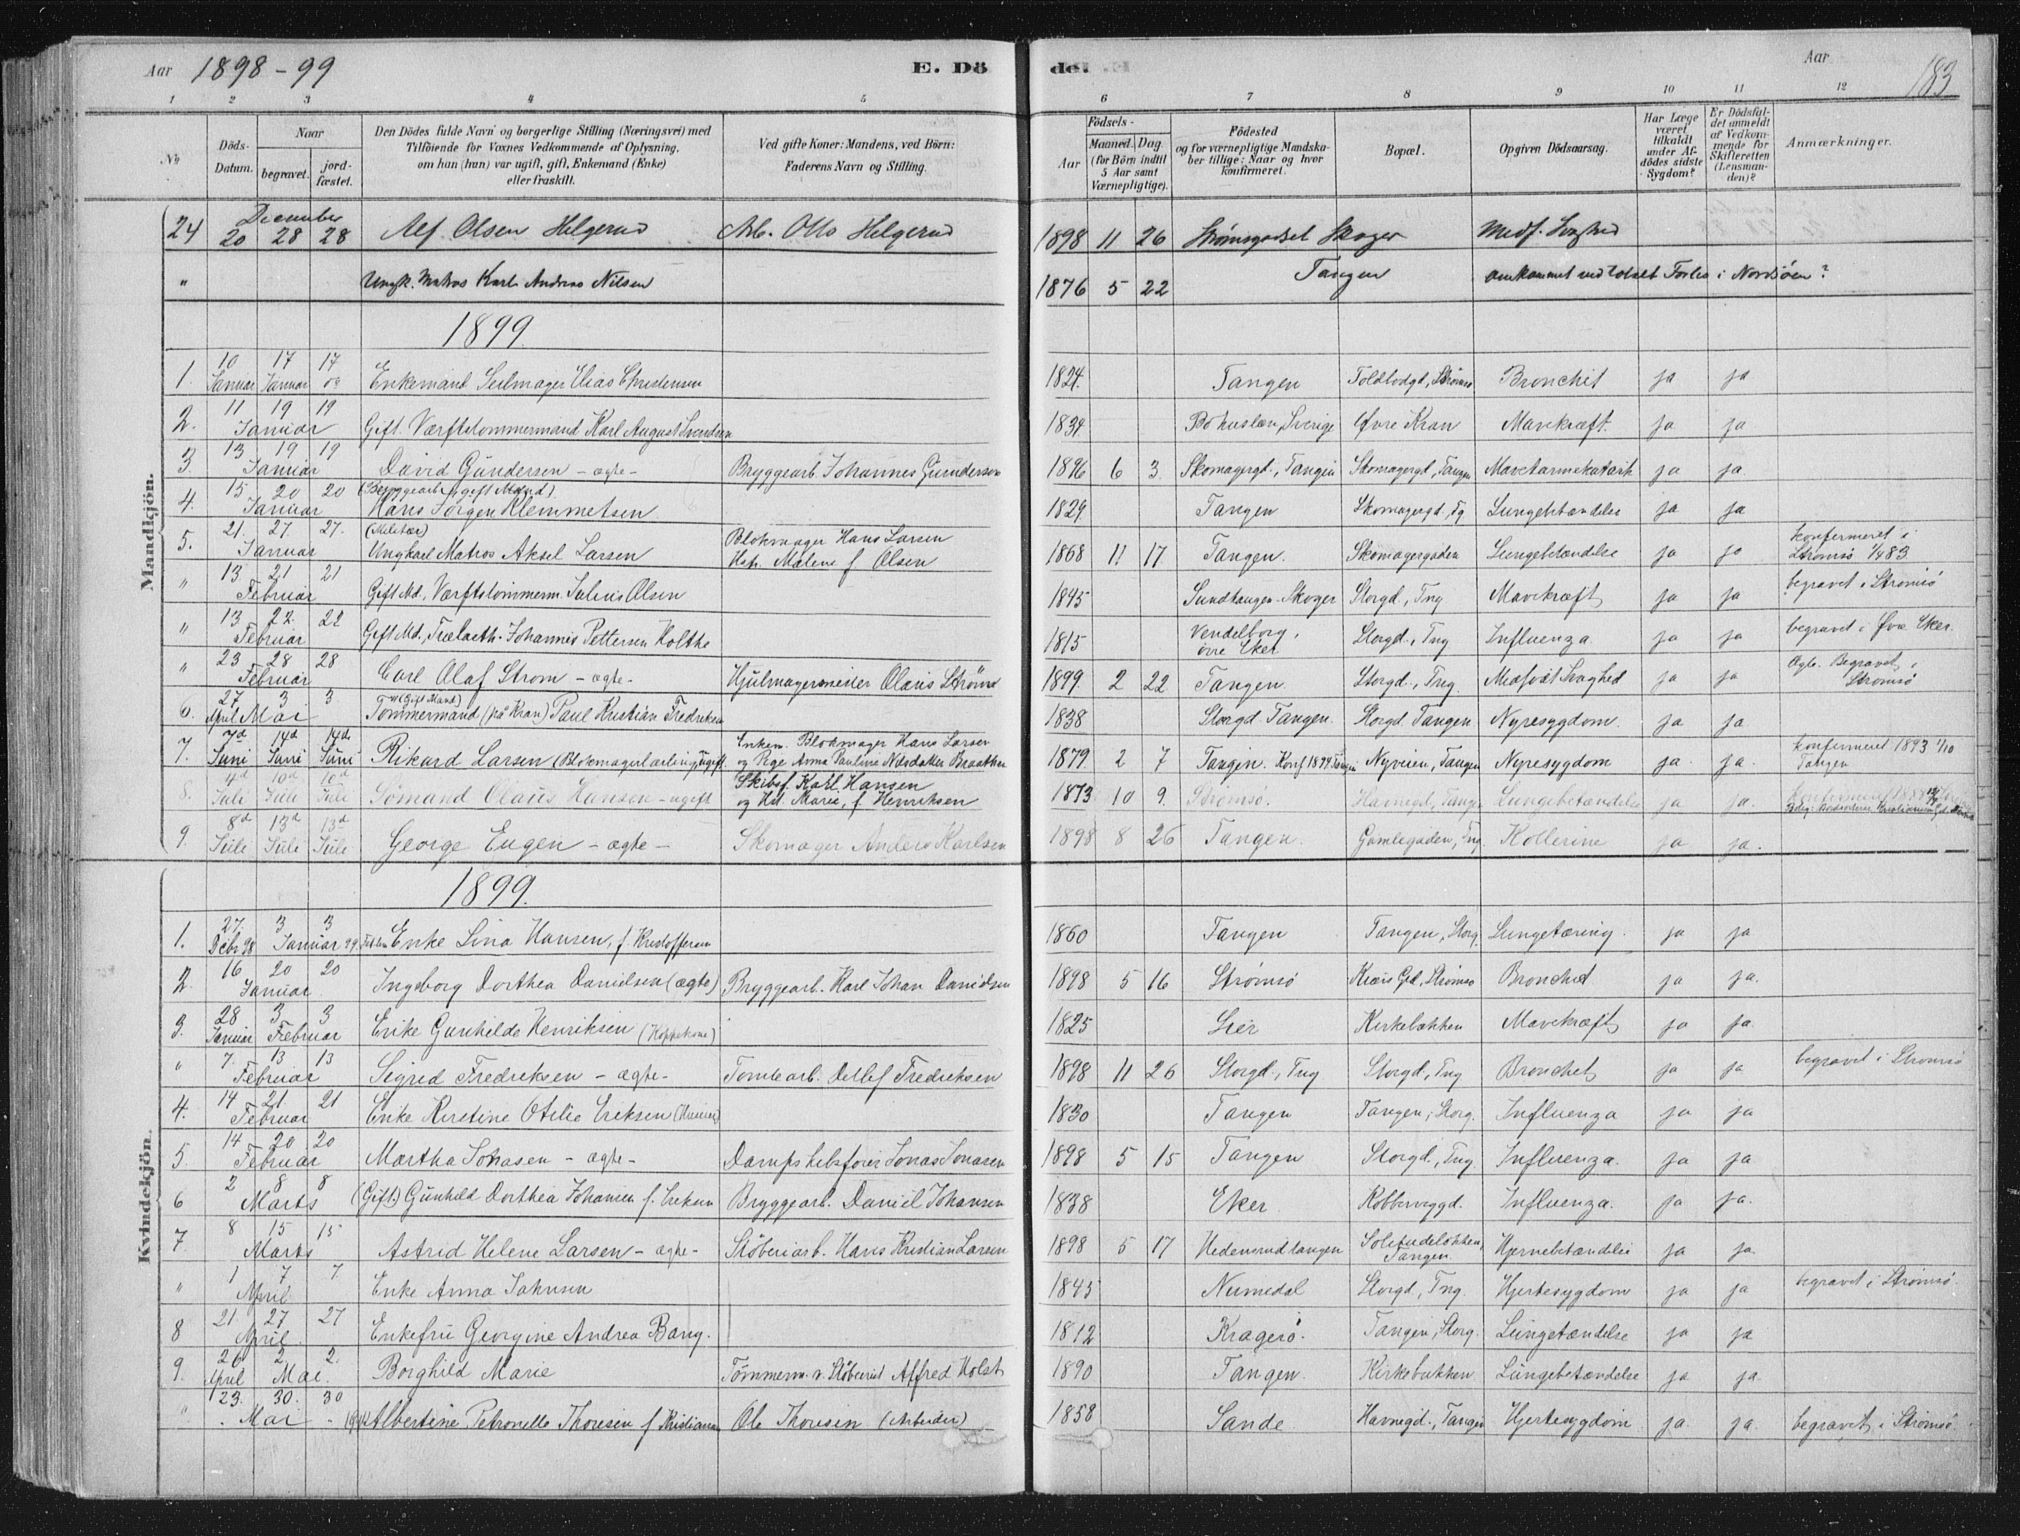 Aar 1898-99
E. Dö
de.
Aar
183
1 2 3 4 5 6 7 8 9 10 11 12
No
Döds-Datum.
Naar
begravet.
jord-fæstet.
Den Dödes fulde Navn og borgerlige Stilling (Næringsvei) med
Tilföiende for Voxnes Vedkommende af Oplysning,
om han (hun) var ugift, gift, Enkemand (Enke)
eller fraskilt.
Ved gifte Koner: Mandens, ved Börn:
Faderens Navn og Stilling.
Födsels-
Aar
Maaned. Dag
(for Börn indtil
5 Aar samt
Værnepligtige).
Födested
og for værnepligtige Mandska-
ber tillige: Naar og hvor
konfirmeret.
Bopæl.
Opgiven Dödsaarsag.
Har Læge
været
tilkaldt
under Af-
dödes sidste
Sygdom?
Er Dödsfal-
det anmeldt
af Vedkom-
mende for
Skifteretten
(Lensman-
den)?
Anmærkninger.
Mandkjön.
24 December 20 28 28 Alf Olsen Helgerud Arb. Otto Helgerud 1898 11 26 Strømsgodset Skoger Medf. Svaghed
" Ungk. Matros Karl Andreas Nilsen 1876 5 22 Tangen omkommet ved totalt Forlis i Nordsøen?
1899
1. 10 Januar 17 Januar 17 Enkemand Seilmager Elias Christensen 1824. Tangen Toldbodgd, Strømsø Bronchit ja ja
2. 11 19 19 Januar Gift. Værftstømmermand Karl August Svendsen 1834. Bohuslæn, Sverige Øvre Kran Mavekræft. ja ja
3. 13 19 19 Januar David Gundersen - ægte - Bryggearb. Johannes Gundersen 1896 6 3. Skomagergd., Tangen Skomagergd, Tangen Mavetarmekatarh ja ja
4. 15 20 20 Januar (Bryggearb, gift Mand) Hans Jørgen Klemmetsen 1829. Tangen Skomagergd., Tg Lungebtændelse ja ja
5. 21. 27. 27. Januar (Militær) Ungkarl Matros Aksel Larsen Blokmager Hans Larsen Hst. Malene f Olsen 1868 11 17. Tangen. Skomagergaden Lungebetændelse ja ja konfermeret i Strømsø 1/4 83
" 13 21 21 Februar Gift Md, Værftstømmerm. Julius Olsen 1845 Sundhaugen Skoger Storgd, Tng Mavekræft ja ja begravet i Strømsø
" 13 22. 22 Februar Gift Md, Trælasth. Johannes Pettersen Holthe 1815 Vendelborg, øvre Eker Storgd., Tng Influenza. ja ja begravet i Øvre Eker.
" 23 28 28 Februar Carl Olaf Strøm - ægte - Hjulmagermester Olaus Strøm 1899. 2 22 Tangen. Storgd., Tng. Medfødt Svaghed ja ja Ægte. Begravet i Strømsø
6. 27 April 3 3 Mai (Gift Mand) Tømmermand (på Kran) Paul Kristian Fredriksen 1838 Storgd Tangen. Storgd. Tangen Nyresygdom. ja ja.
7. 7d Juni 14d Juni 14d Juni Rikard Larsen (Blokmagerlærling) ugift Enkem. Blokmager Hans Larsen og Pige Anna Pauline Nilsdatter Braathen 1879. 2 7 Tangen. Konf. 1894 Tangen Nyveien, Tangen Nyresygdom ja. ja. konfermeret 1893 1/10 Tangen
8. 4d Juli 10d Juli 10d Juli Sømand Olaus Hansen - ugift Skibsf. Karl Hansen og Hst. Marie, f Henriksen 1873 10 9. Strømsø. Havnegd, Tangen Lungebetændelse ja ja.
9. 8d Juli 13d Juli 13d Juli George Eugen - ægte - Skomager Anders Karlsen 1898 8 26 Tangen. Gamlegaden, Tng. Kollerine ja ja.
Kvindekjön.
1899.
1. 27. Debr 98 3 3 Januar 99 Enke Lina Hansen, f Kristoffersen 1860 Tangen Tangen, Storg. Lungetæring. ja ja
2. 16 20 20 Januar Ingeborg Dorthea Danielsen (ægte) Bryggearb. Karl Johan Danielsen 1898 5 16 Strømsø Kræis Gd, Strømsø Bronchit ja ja.
3. 28 Januar 3 3 Februar Enke Gunhilde Henriksen (Koppekone) 1825 Lier Kirkebakken Mavekræft ja ja.
" 7. 13 13 Februar Sigrid Fredriksen - ægte - Tomtearb. Detlef Fredriksen 1898 11 26 Storgd., Tng Storgd, Tng Bronchit ja ja begravet i Strømsø
4. 14 21 21 Februar Enke Kirstine Otilie Eriksen 1830 Tangen Tangen, Storg. Influenza ja ja
5. 14 20 20 Februar Martha Jonasen - ægte - Dampskibsfører Jonas Jonasen 1898 5 15 Tangen Storgd., Tng Influenza. ja ja
6 2 8 8 Marts (Gift) Gunhild Dorthea Johansen Bryggearb. Daniel Johansen 1838 Eker. Kobberveggd. Influenza. ja ja.
7. 8 15 15 Marts Astrid Helene Larsen - ægte - Støberiarb. Hans Kristian Larsen 1898 5 17 Hedensrudtangen Solitudeløkken, Tangen. Hjernebetændelse ja ja.
" 1 7 7 April Enke Anna Johnsen 1845 Numedal Storgd, Tng. Hjertesygdom ja ja begravet i Strømsø.
8 21. 27 27 April Enkefru Georgine Andrea Bang. 1812 Kragerø. Tangen, Storg. Lungetændelse ja ja
9. 26 April 2 2. Mai. Borghild Marie Tømmerm. v. Støberiet Alfred Holst 1890 Tangen. Kirkebakken Lungebetændelse ja ja.
" 23. 30. 30 Mai (Gift) Albertine Petronelle Thoresen f Kristiansen Ole Thoresen (Arbeider) 1858 Sande. Havnegd., Tangen Hjertesygdom ja. ja. begravet i Strømsø.